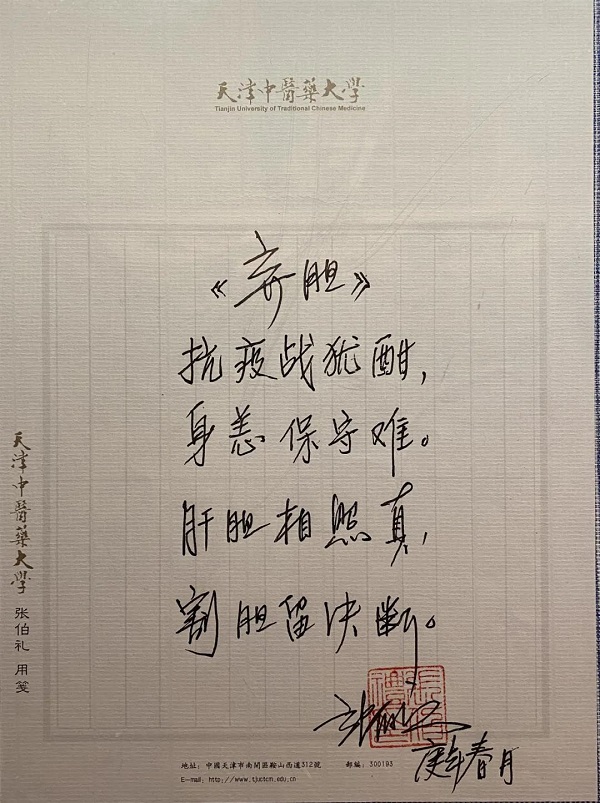 天津中醫藥大學
Tianjin University of Traditional Chinese Medicine
《弃胆》
抗疫战犹酣，
身恙保守难。
肝胆相照真，
割胆留决断。
张伯礼
庚子春月
天津中醫藥大學 张伯礼 用笺
地址：中國天津市南開區鞍山西道312號 郵編：300193
E-mail：http://www.tjutcm.edu.cn